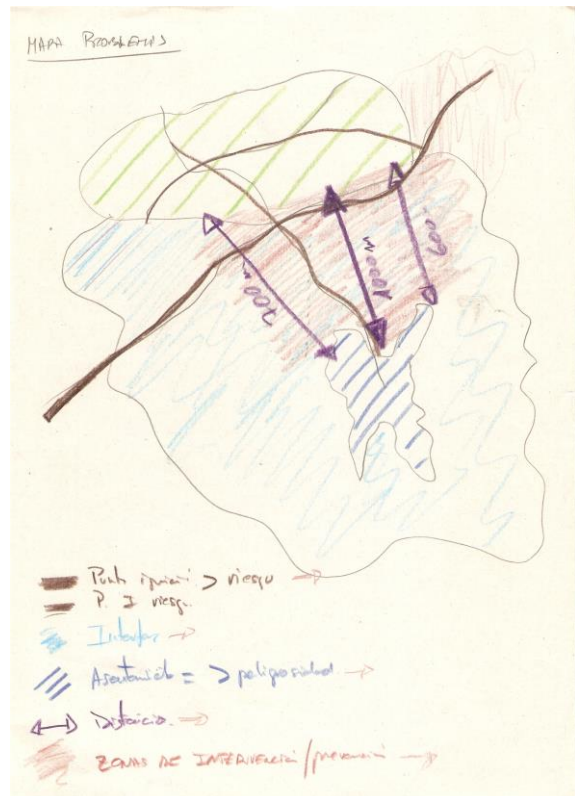 MAPA PROBLEMAS
700 m
1000 m
600
Punto ignició > riesgo →
P. I riesgo.
Interfaz →
= > peligrosidad →
Distància. →
ZONAS DE INTERVENCIÓ/prevenció →